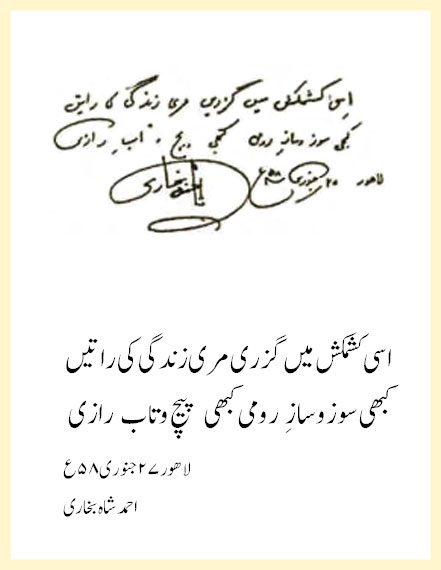 اسی کشمکش میں گزری مری زندگی کی راتیں
کبھی سوز و سازِ رومی کبھی پیچ و تابِ رازی
لاهور ۲۷ جنوری ۵۸ع
بخاری
اسی کشمکش میں گزری مری زندگی کی راتیں
کبھی سوز و سازِ رومی کبھی پیچ و تاب رازی
لاهور ۲۷ جنوری ۵۸ع
احمد شاہ بخاری